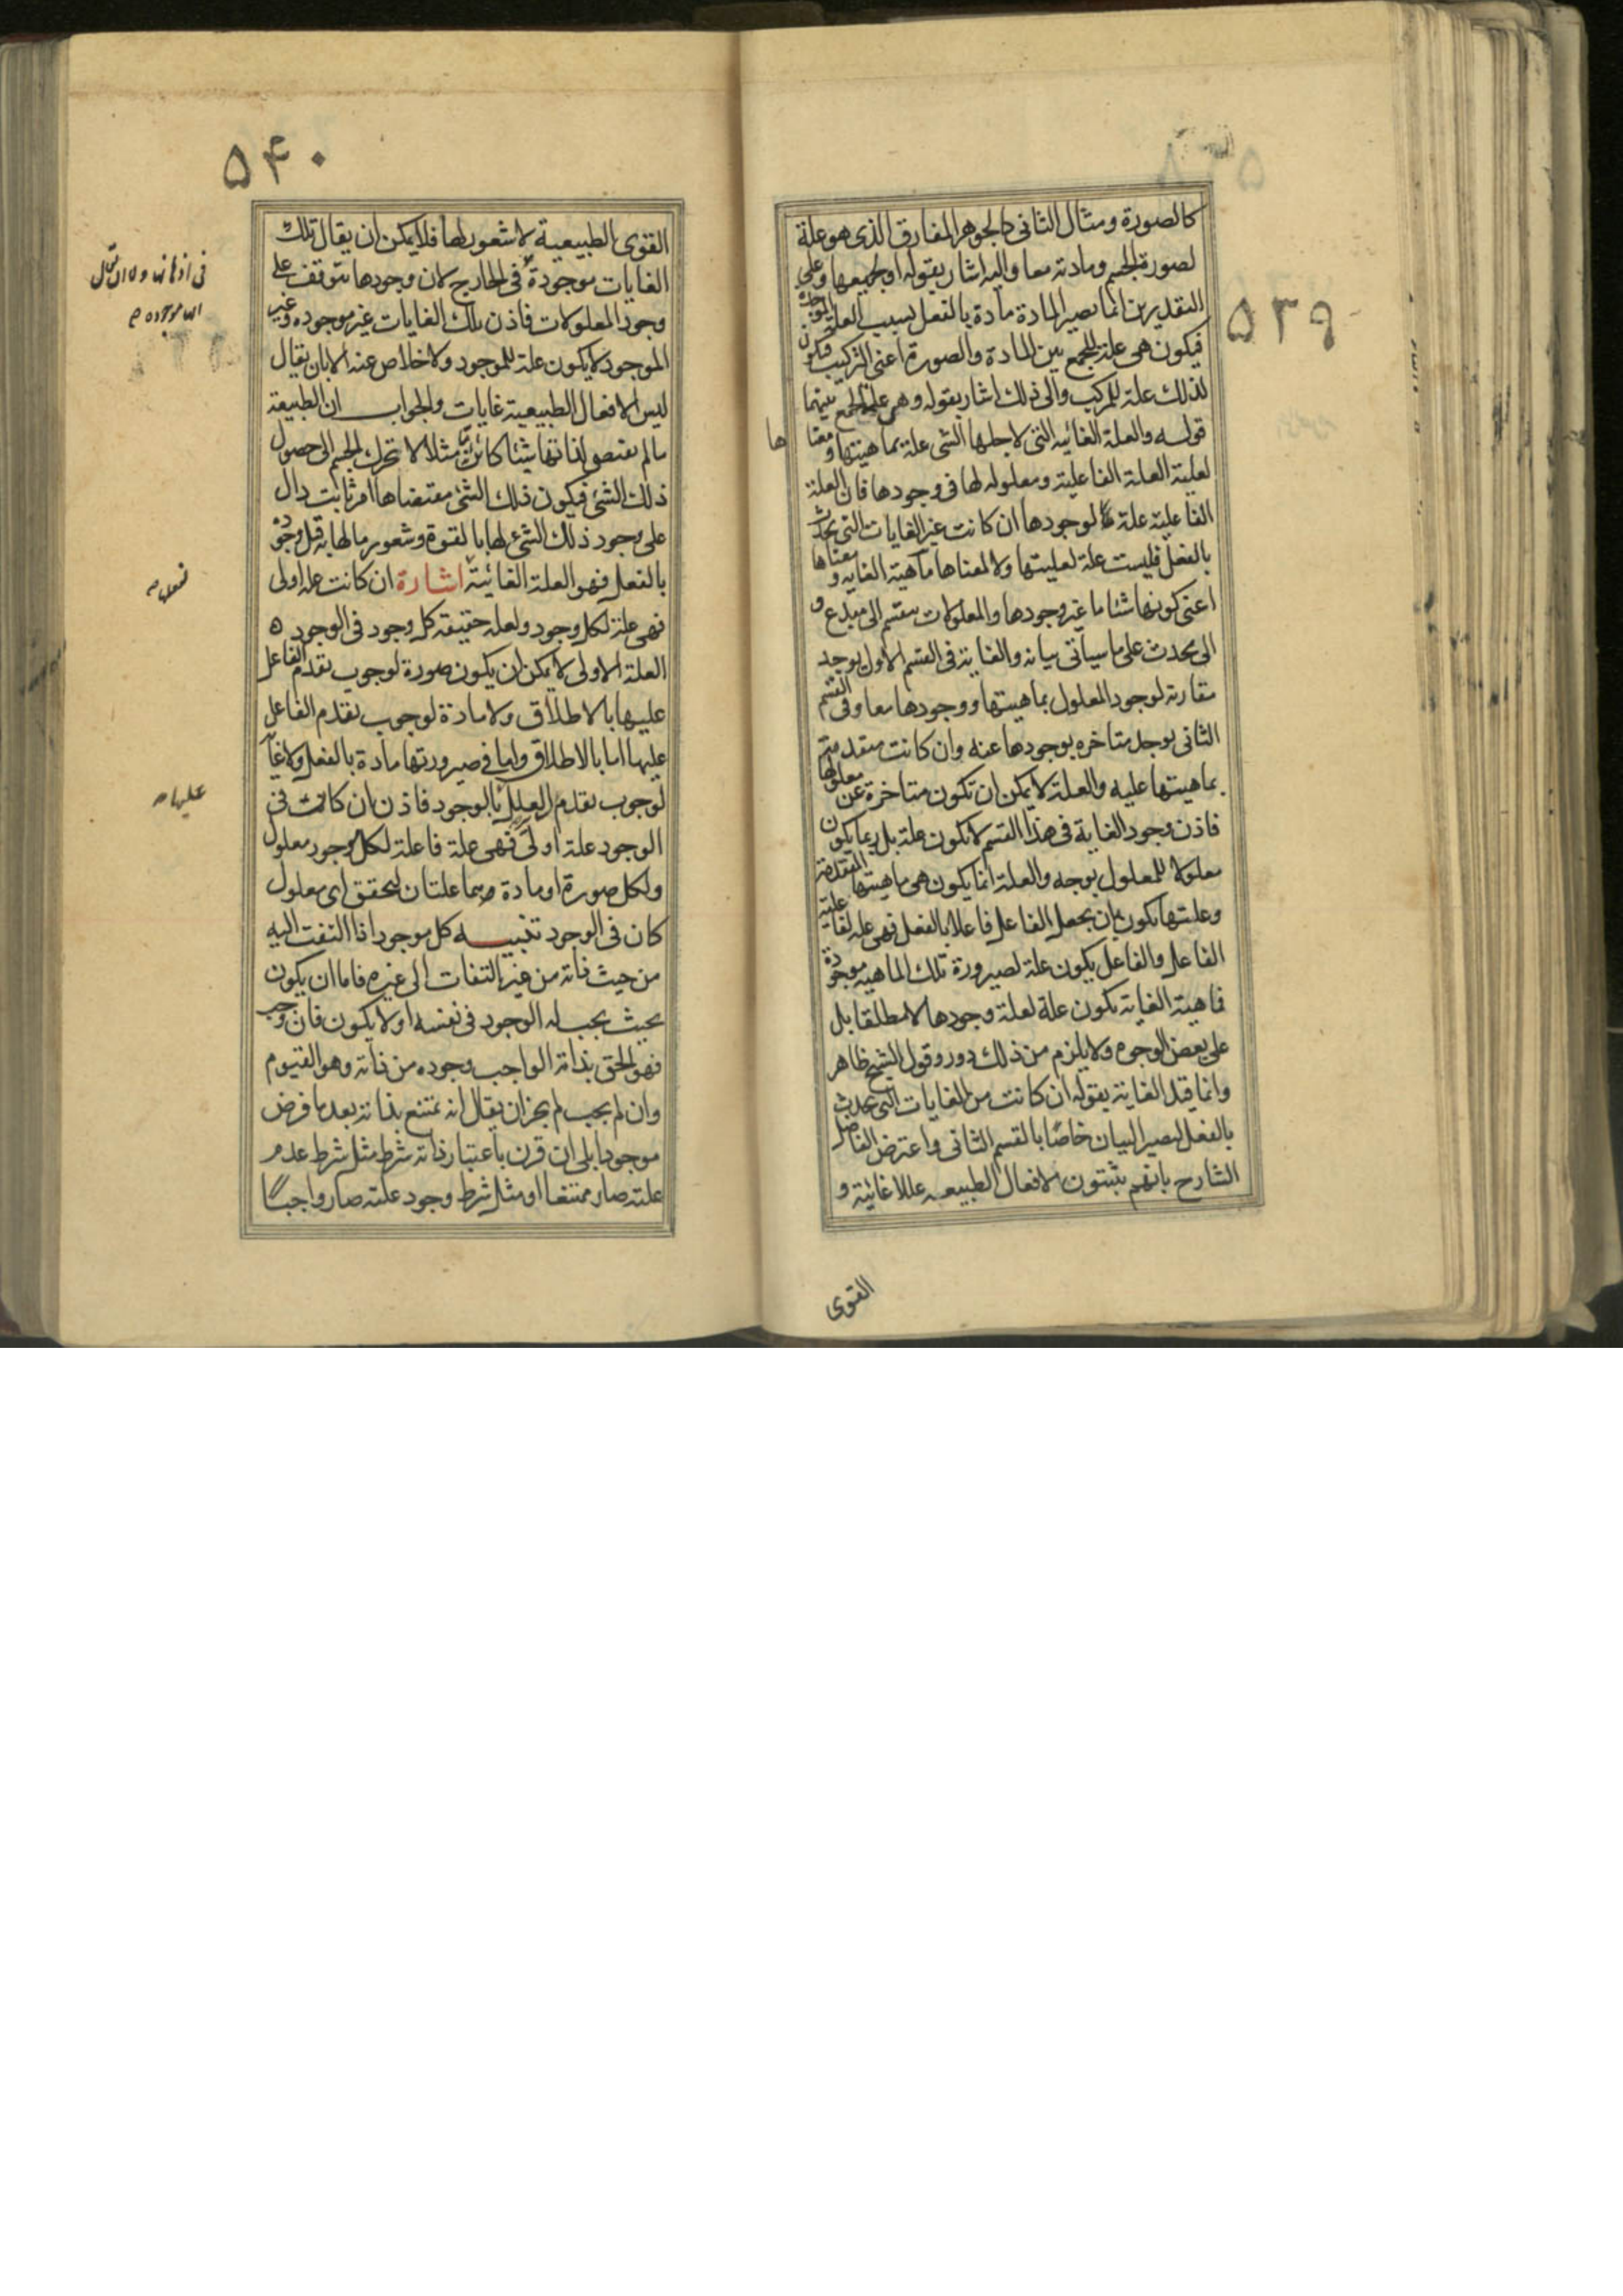 ۵۳۹
كالصورة ومثال الثانى كالجوهر المفارق الذى هو علة
لصورة الجسم ومادته معا واليه اشار بقوله او لجميعها وعلى
التقديرين انما تصير المادة مادة بالفعل بسبب العلة الموجدة
فيكون هى علة للجمع بين المادة والصورة اعنى التركيب فيكون
لذلك علة للمركب والى ذلك اشار بقوله وهى علة الجمع بينهما
قوله والعلة الغائيه التى لاجلها الشى علة بماهيتها ومعنا
ها
لعلية العلة الفاعلية ومعلوله لها فى وجودها فان العلة
الفاعلية علة ما لوجودها ان كانت من الغايات التى يحدث
بالفعل فليست علة لعليتها ولا لمعناها ماهية الغايه ومعناها
اعنى كونها شئا ما غير وجودها والمعلولات ينقسم الى مبدع و
الى محدث على ما سياتى بيانه والغاية فى القسم الاول يوجد
مقارنة لوجود المعلول بماهيتها ووجودها معا وفى القسم
الثانى يوجد متاخره بوجودها عنه وان كانت متقدمة
بماهيتها عليه والعلة لا يمكن ان تكون متاخرة عن معلولها
فاذن وجود الغاية فى هذا القسم لا يكون علة بل ربما يكون
معلولا للمعلول بوجه والعلة انما يكون هى ماهيتها المتقدمة
وعليتها يكون بان يجعل الفاعل فاعلا بالفعل فهى علة لفاعلية
الفاعل والفاعل يكون علة لصيرورة تلك الماهيه موجودة
فماهية الغاية يكون علة لعلة وجودها لا مطلقا بل
على بعض الوجوه ولا يلزم من ذلك دور وقول الشيخ ظاهر
وانما قيد الغاية بقوله ان كانت من الغايات التى يحدث
بالفعل ليصير البيان خاصا بالقسم الثانى واعترض الفاضل
الشارح بانهم يثبتون لافعال الطبيعه عللا غائية و
القوى
۵۴۰
القوى الطبيعية لا شعور لها فلا يمكن ان يقال تلك
الغايات موجودة فى الخارج لان وجودها يتوقف على
وجود المعلولات فاذن تلك الغايات غير موجوده وغير
الموجود لا يكون علة للموجود ولا خلاص عنه الا بان يقال
ليس لافعال الطبيعية غايات والجواب ان الطبيعة
ما لم يقتض لذاتها شئا كاين مثلا لا تحرك الجسم الى حصول
ذلك الشئ فيكون ذلك الشئ مقتضاها امر ثابت دال
على وجود ذلك الشئ لها بالقوة وشعور ما لها به قبل وجوده
بالفعل فهو العلة الغائية اشارة ان كانت علة اولى
فهى علة لكل وجود ولعلة حقيقة كل وجود فى الوجود ه
العلة الاولى لا يمكن ان يكون صورة لوجوب تقدم الفاعل
عليها بالاطلاق ولا مادة لوجوب تقدم الفاعل
عليها اما بالاطلاق واما فى صيرورتها مادة بالفعل ولا غاية
لوجوب تقدم العلل بالوجود فاذن ان كانت فى
الوجود علة اولى فهى علة فاعلة لكل وجود معلول
ولكل صورة او مادة هما علتان لتحقق اى معلول
كان فى الوجود تنبيه كل موجود اذا التفت اليه
من حيث ذاته من غير التفات الى غيره فاما ان يكون
بحيث يجب له الوجود فى نفسه او لا يكون فان وجب
فهو الحق بذاته الواجب وجوده من ذاته وهو القيوم
وان لم يجب لم يجز ان يقال انه ممتنع بذاته بعد ما فرض
موجودا بلى ان قرن باعتبار ذاته شرط مثل شرط عدم
علته صار ممتنعا او مثل شرط وجود علته صار واجبا
عليها